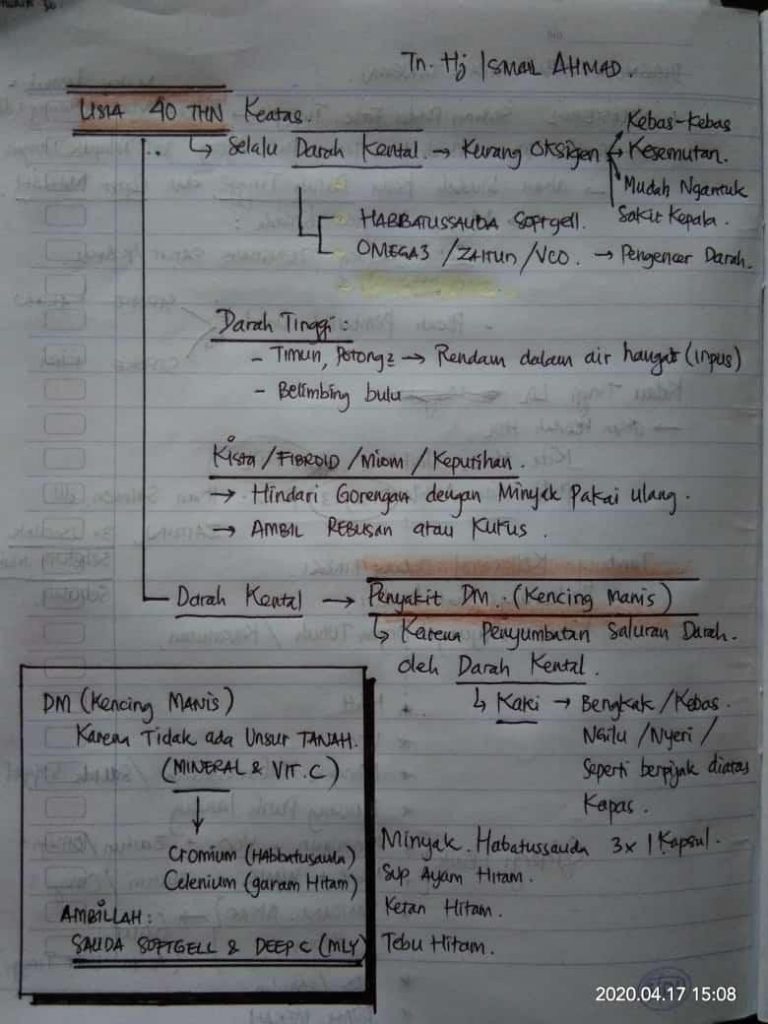 Tn. Hj ISMAIL AHMAD.
USIA 40 THN Keatas.
↳ Selalu Darah Kental → Kurang Oksigen → Kebas-Kebas
→ Kesemutan.
Mudah Ngantuk
Sakit Kepala.
HABBATUSSAUDA Softgell.
OMEGA3 / ZAITUN / VCO. → Pengencer Darah.
Darah Tinggi :
- Timun, Potong2 → Rendam dalam air hangat (inpus)
- Belimbing bulu
Kista / FIBROID / Miom / Keputihan.
→ Hindari Gorengan dengan Minyak Pakai ulang.
→ AMBIL REBUSAN atau Kukus.
Darah Kental → Penyakit DM. (Kencing Manis)
↳ Karena Penyumbatan Saluran Darah.
oleh Darah Kental.
↳ Kaki → Bengkak / Kebas.
Ngilu / Nyeri /
Seperti berpijak diatas
Kapas.
DM (Kencing MANIS)
Karena Tidak ada Unsur TANAH.
(MINERAL & VIT. C)
Cromium (Habbatusauda)
Celenium (garam Hitam)
AMBILLAH :
SAUDA SOFTGELL & DEEP C (MLY)
Minyak. Habatussauda 3x 1 Kapsul.
Sup Ayam Hitam.
Ketan Hitam.
Tebu Hitam.
2020.04.17 15:08